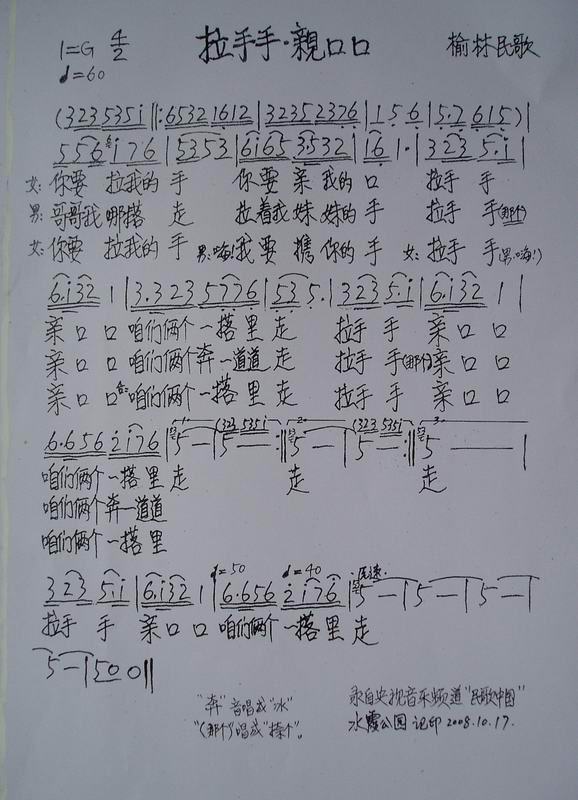 1=G 4/2 拉手手·親口口 榆林民歌
♩=60
(323 535i ‖: 6532 1612 | 3235 2376 | 1 5 6 | 5.7 615) |
556 i 76 | 5353 | 6i65 3532 | 16 1. | 323 5.i |
女: 你要 拉我的 手 你要 亲 我的 口 拉手 手
男: 哥哥我 哪搭 走 拉着我 妹 妹的 手 拉手 手(那个)
女: 你要 拉我的 手 男:嗨!我要 携 你的 手 女: 拉手 手(男:嗨!)
6.i32 1 | 3.323 5776 | 53 5. | 323 5.i | 6.i32 1 |
亲口 口 咱们俩个 一搭里 走 拉手 手 亲口 口
亲口 口 咱们俩个奔一道道 走 拉手 手(那个)亲口 口
亲口 口 合:咱们俩个 一搭里 走 拉手 手 亲口 口
6.656 2i76 | 5 — | 5 — :‖ 5 — | 5 — :‖ 5 — |
(323 535i) (323 535i)
咱们俩个 一搭里 走 走 走
咱们俩个奔一道道
咱们俩个 一搭里
♩=50 ♩=40
323 5.i | 6.i32 1 | 6.656 2i76 | 5 — | 5 — | 5 — |
拉手 手 亲口 口 咱们俩个 一搭里 走
5 — | 50 0 ‖
"奔"音唱成"水" 录自央视音乐频道"民歌中国"
水霞公园 记印 2008.10.17.